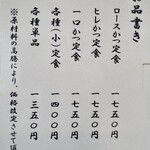 品書き
ロースかつ定食 一七五〇円
ヒレかつ定食 一七五〇円
一口かつ定食 一七五〇円
各種(小)定食 一四〇〇円
各種単品 一三五〇円
※原材料の高騰により、価格改定させて頂